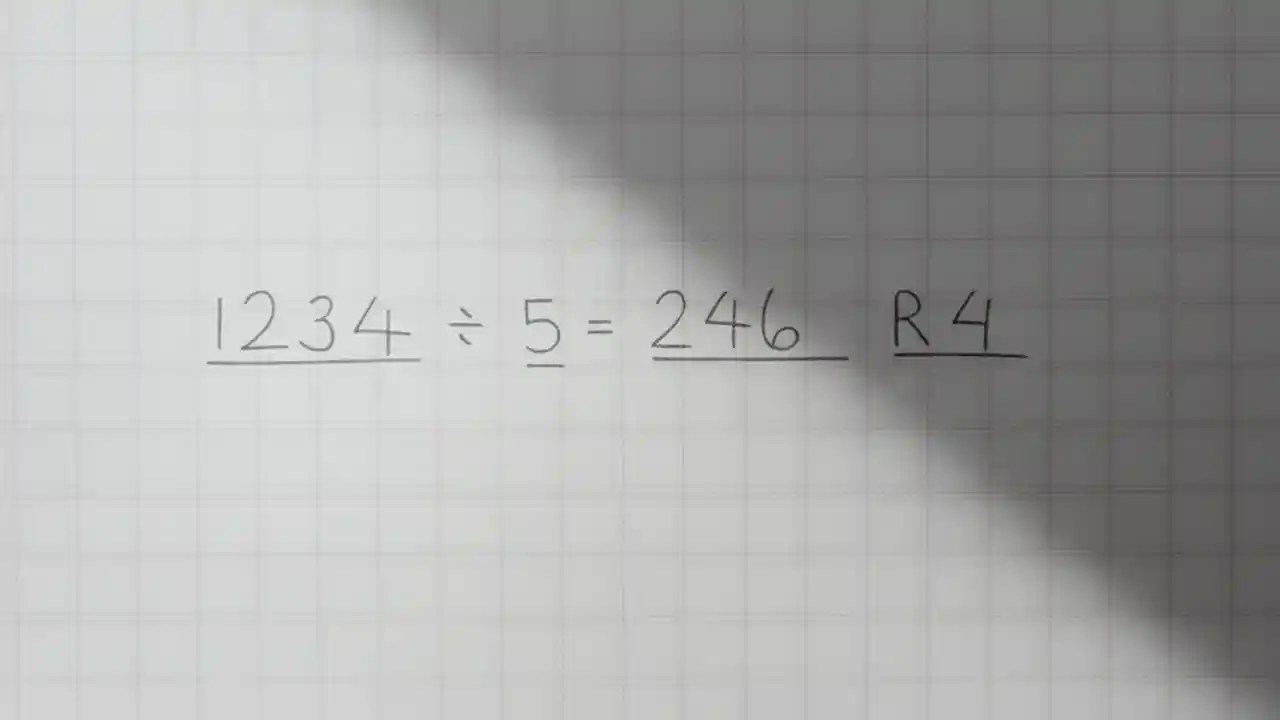 1234 ÷ 5 = 246 R4